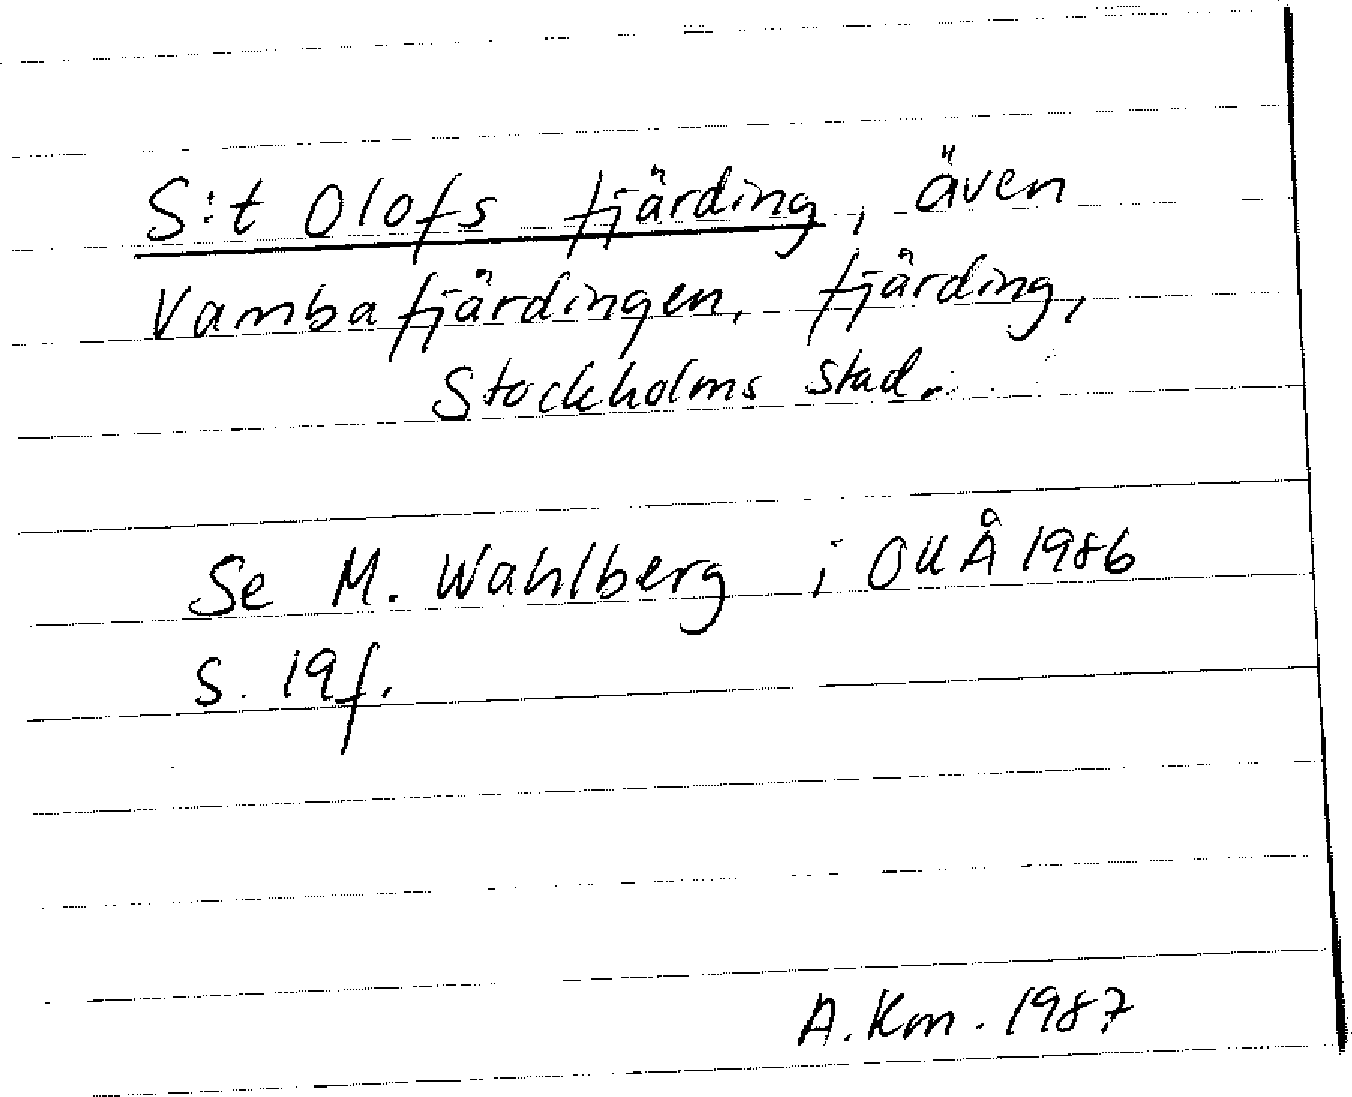 S:t Olofs fjärding, även
Vambafjärdingen, fjärding,
Stockholms stad.
Se M. Wahlberg i OUÅ 1986
s. 19f.
A. Km. 1987